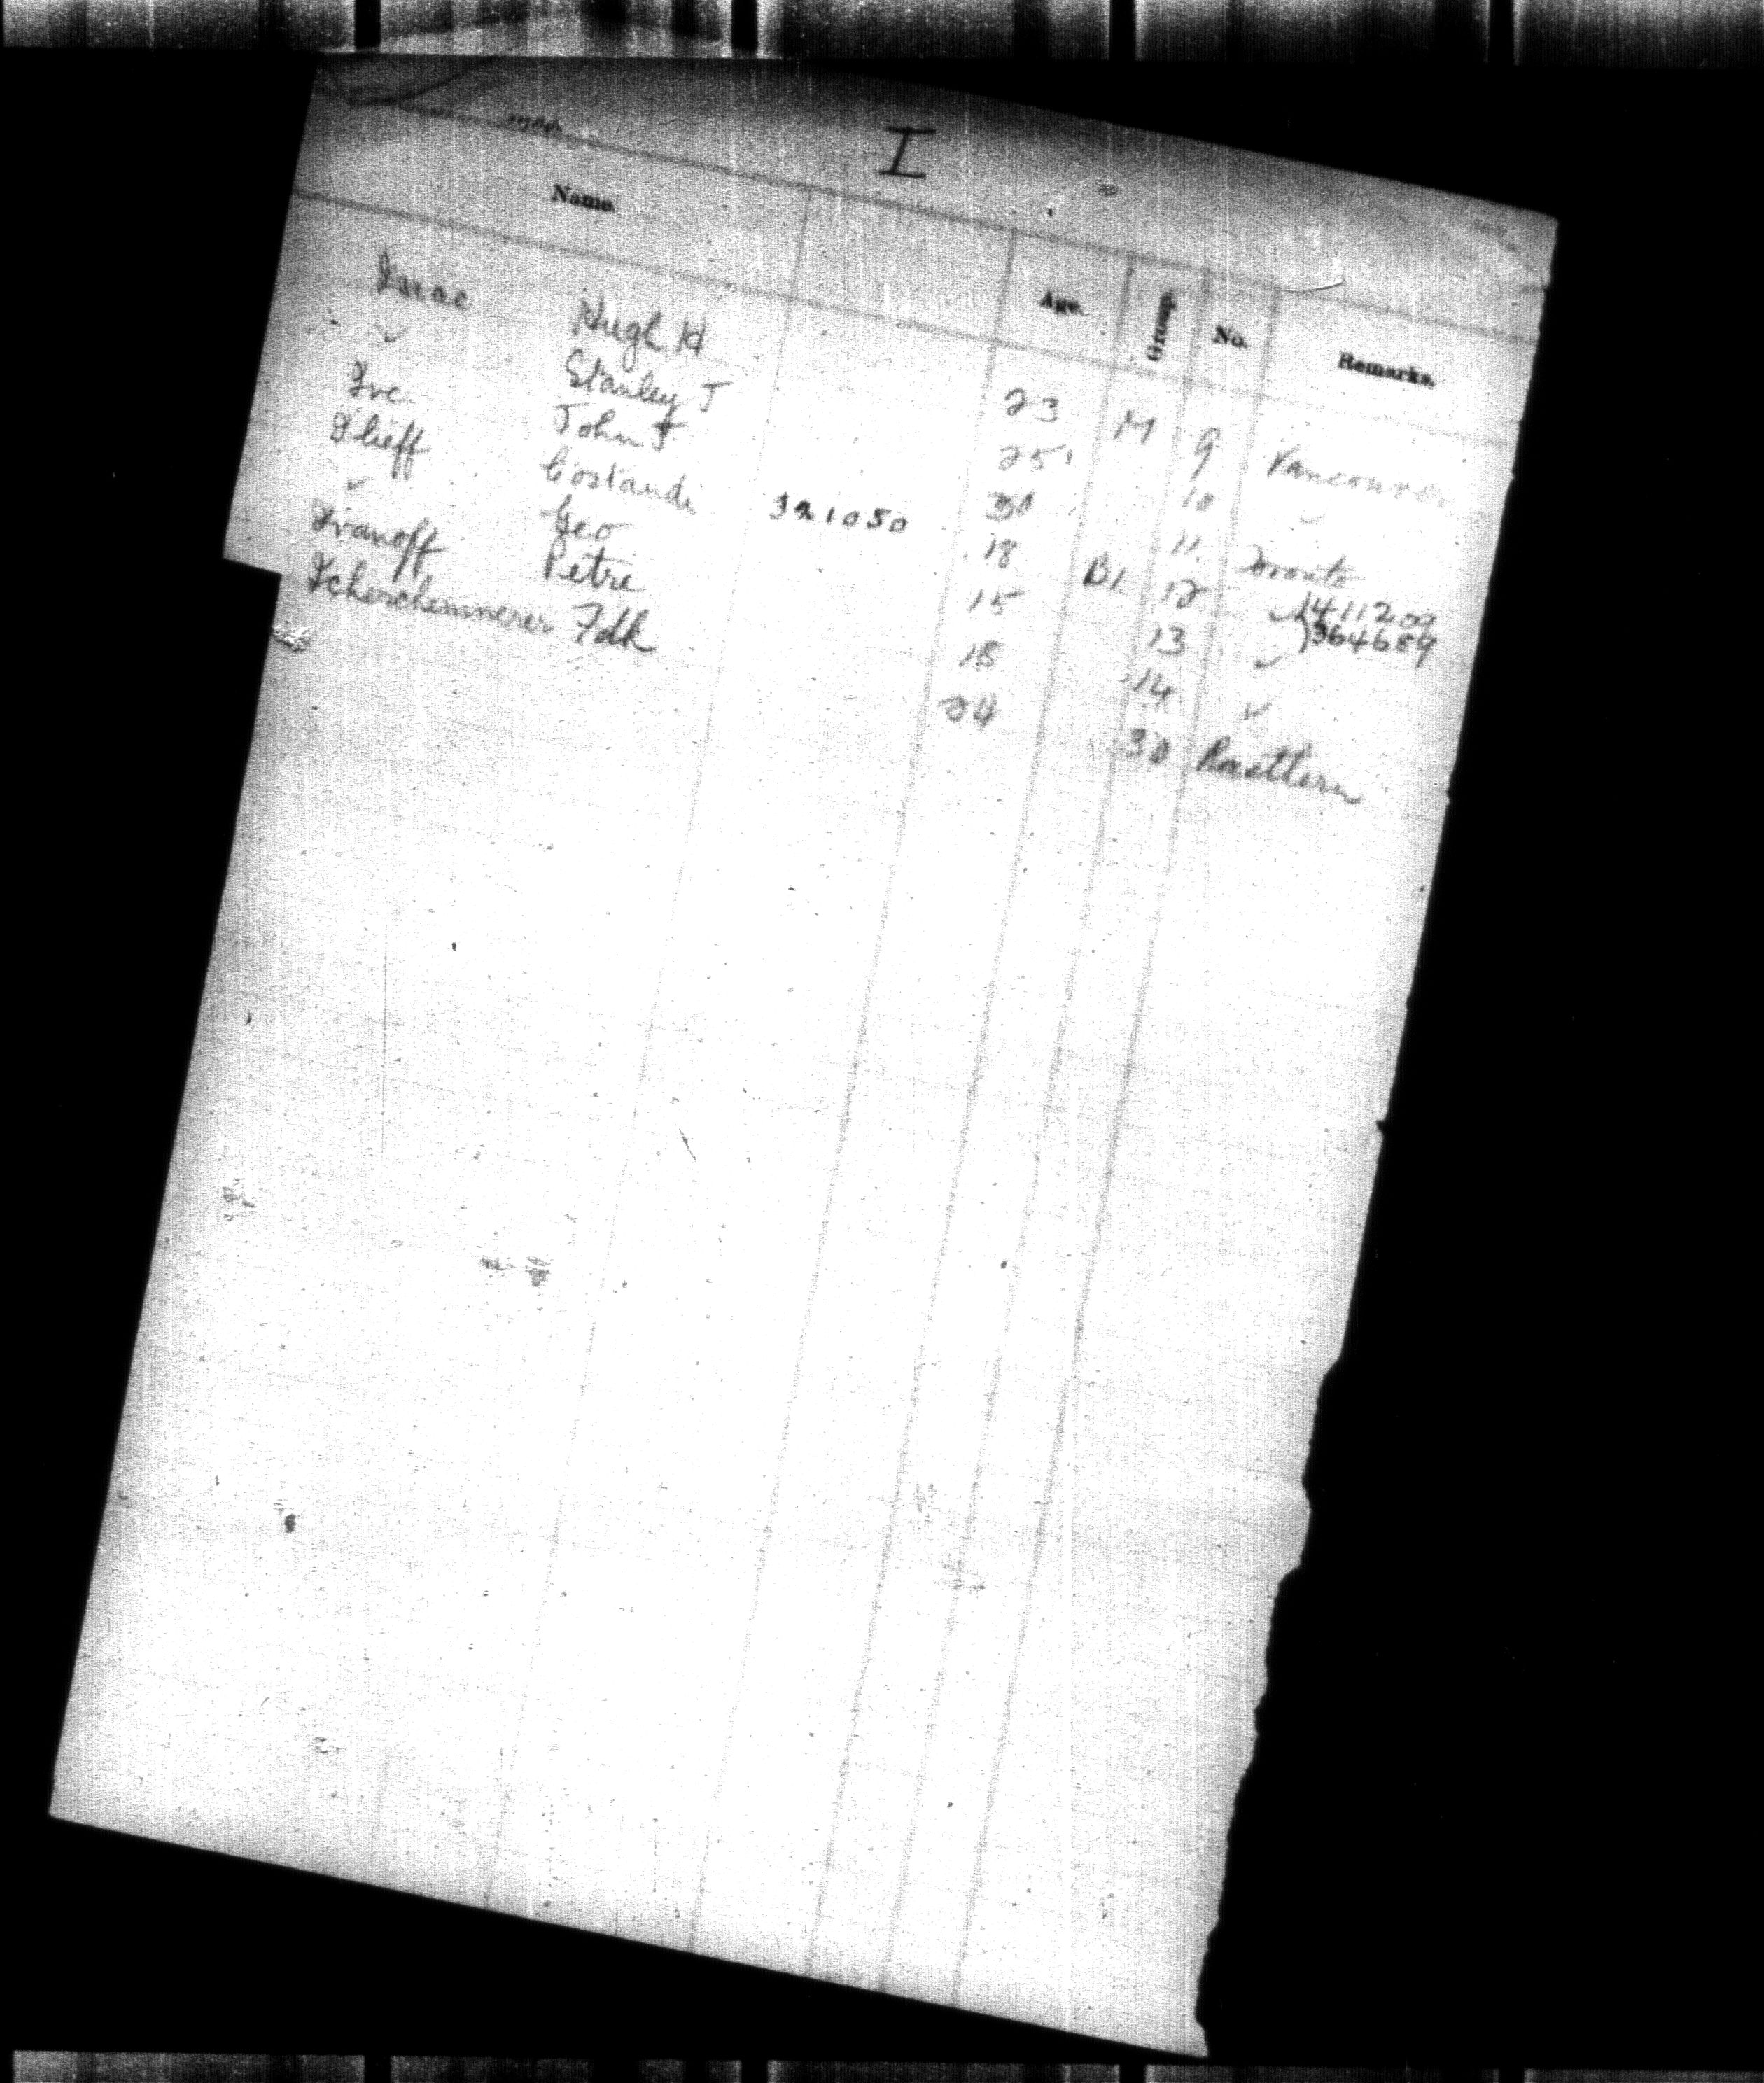 I
Name. Age. Group. No. Remarks.
Isaac Hugh H 23 M 9 Vancouver
✓ Stanley J 25 10 ✓
Ive John J 30 11 Toronto
Ilieff Costandi 321050 18 B1 12 ✓ 411209
✓ Geo 15 13 ✓ 364689
Ivanoff Petre 18 14 ✓
Fdk 24 30 Rosthern